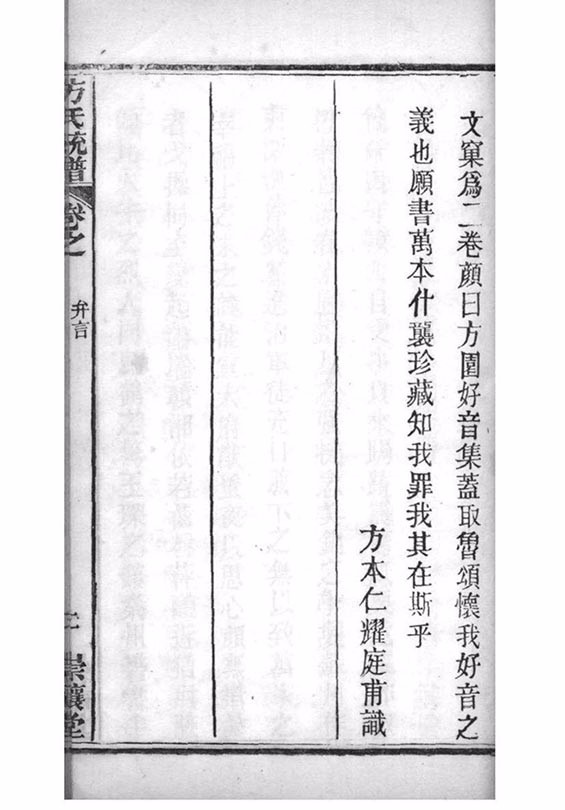 文窠爲二卷顔曰方園好音集蓋取魯頌懷我好音之
義也願書萬本什襲珍藏知我罪我其在斯乎
方本仁耀庭甫識
方氏統譜
卷之
弁言
二
崇讓堂